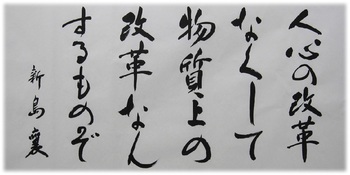 人心の改革
なくして
物質上の
改革なん
するものぞ
新島襄